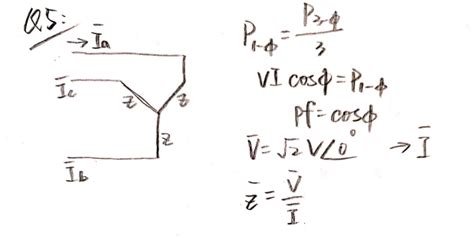 Q5:
→ I̅a
I̅c
z
z
z
I̅b
P₁₋ϕ = P₃₋ϕ / 3
VI cosϕ = P₁₋ϕ
Pf = cosϕ
V̅ = √2 V∠0° → I̅
z̅ = V̅ / I̅